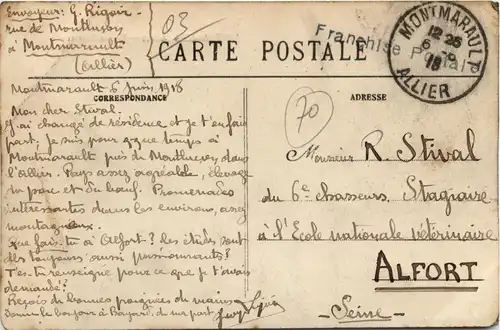 Envoyeur: G. Rigoir
rue de Montluçon
à Montmarault
(Allier)
03
CARTE POSTALE
Franchise Postale
MONTMARAULT
12 25
6 - 6
18
ALLIER
CORRESPONDANCE
ADRESSE
70
Montmarault 6 juin 1918
Mon cher Stival.
J'ai changé de résidence et je t'en fais
part. Je suis pour que temps à
Montmarault près de Montluçon dans
l'Allier. Pays assez agréable, élevage
du porc et du bœuf. Promenades
intéressantes dans les environs, assez
montagneux.
Que fais-tu à Alfort? les études sont
elles toujours aussi passionnantes?
T'es-tu renseigné pour ce que je t'avais
demandé?
Reçois de bonnes poignées de mains
Donne le bonjour à de ma part
Monsieur R. Stival
du 6e chasseurs. Stagiaire
à l'École nationale vétérinaire
ALFORT
- Seine -